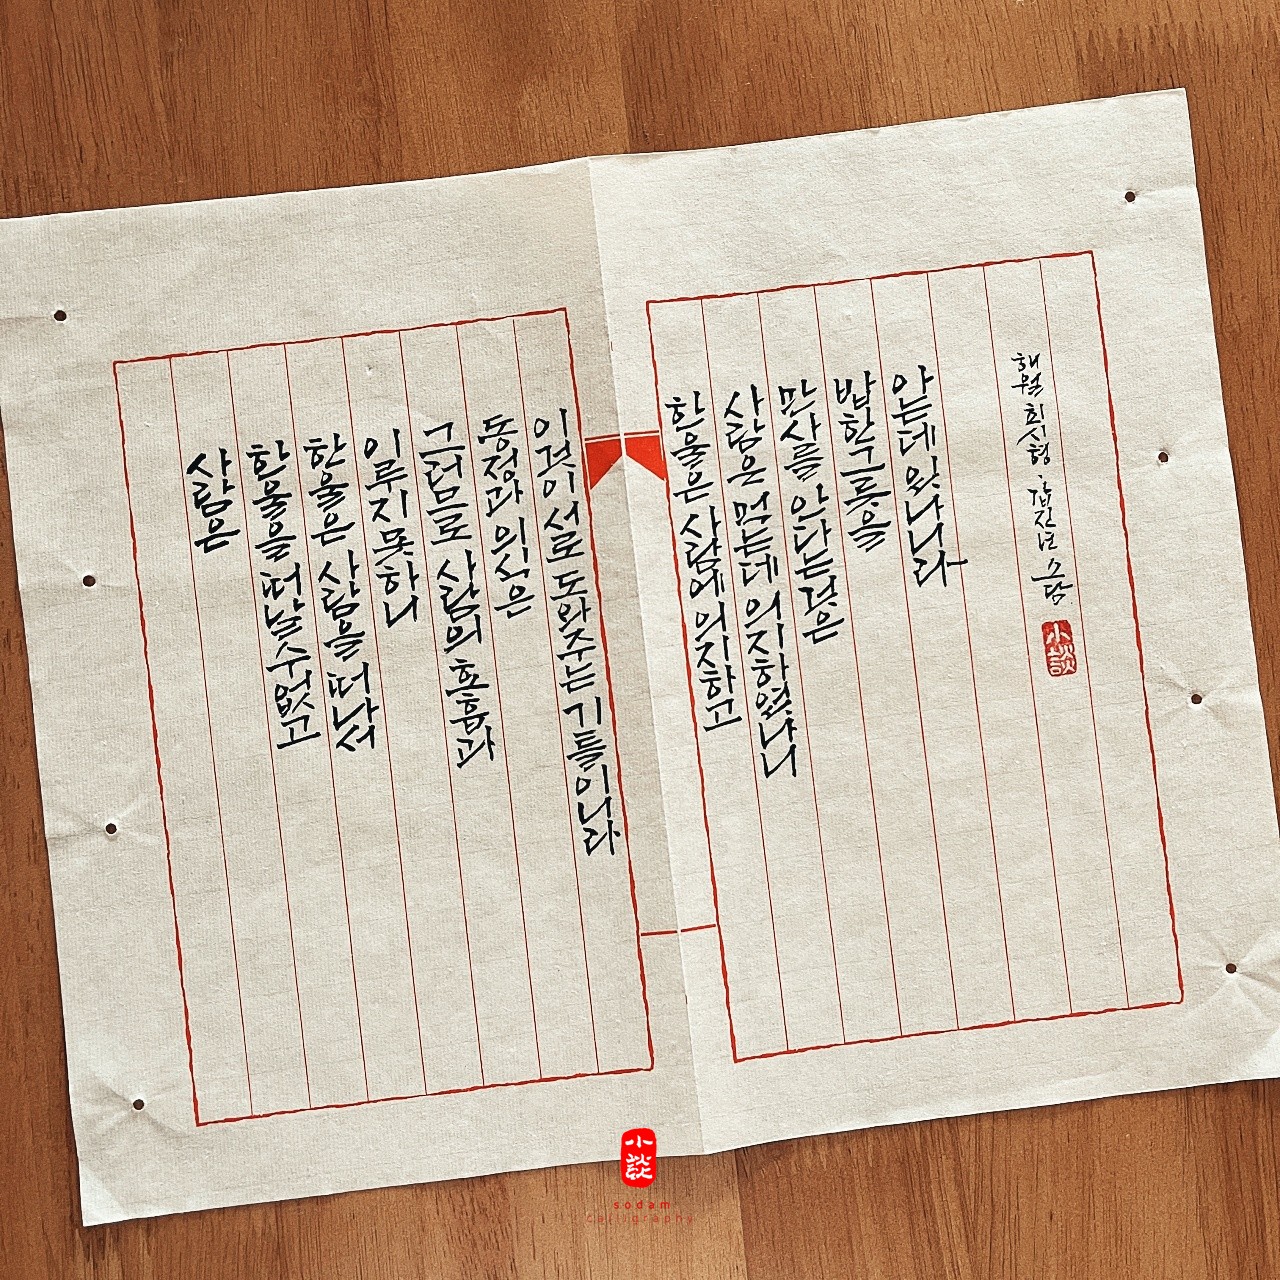 사람은
한울을 떠날수 없고
한울은 사람을 떠나서
이루지 못하니
그러므로 사람의 호흡과
동정과 의식은
이것이 서로 도와주는 기틀이니라
한울은 사람에 의지하고
사람은 먹는데 의지하였나니
만사를 안다는 것은
밥한그릇을
아는데 있나니라
해월 최시형, 갑진년 소담
小談
小談
sodam
calligraphy